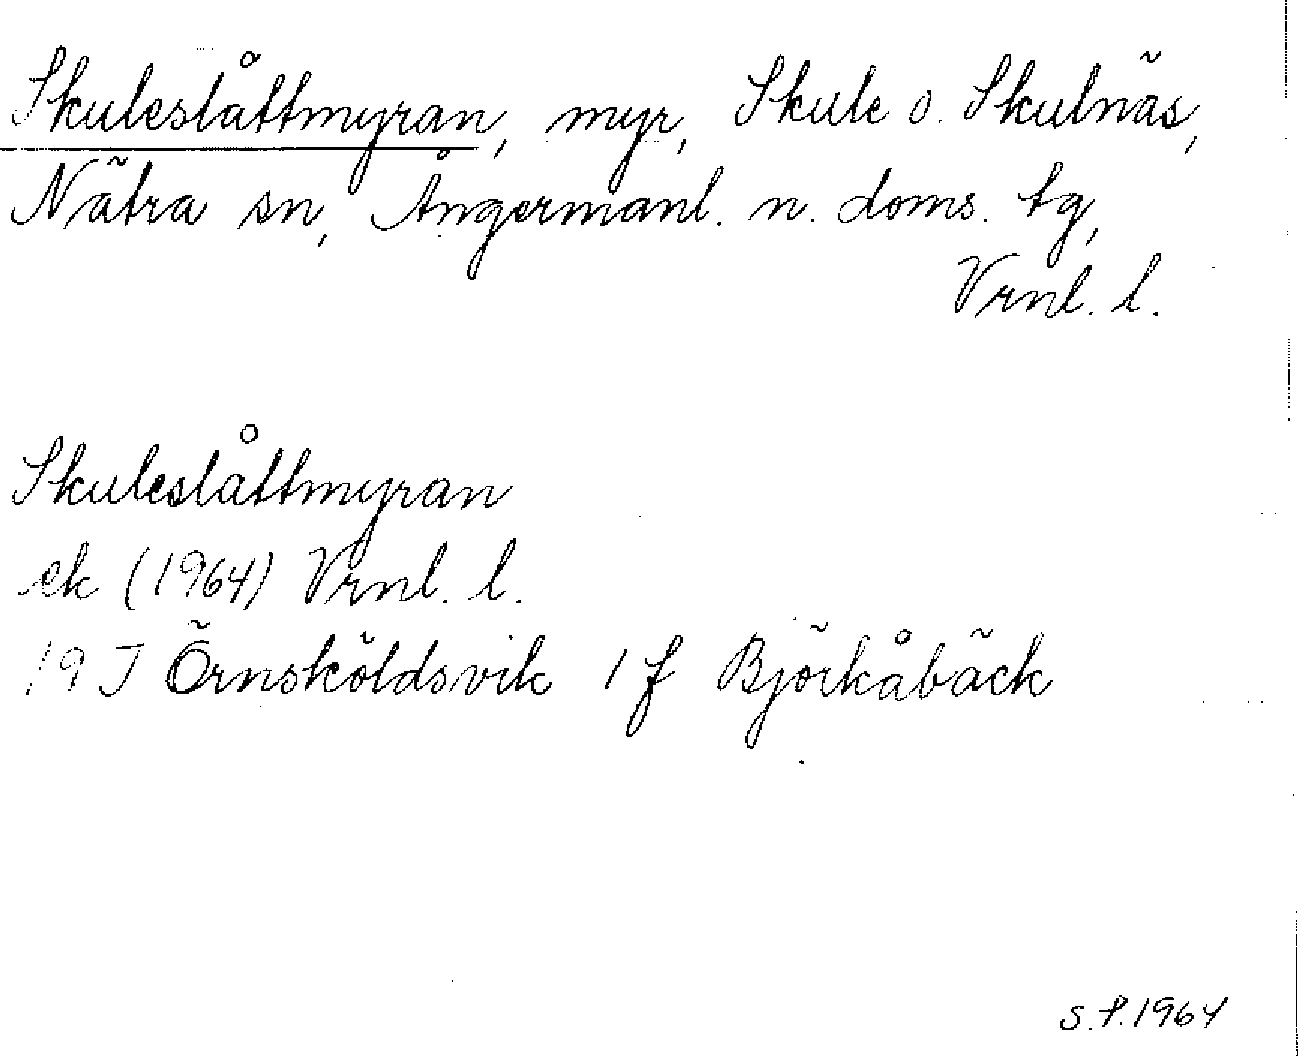 Skuleslåttmyran, myr, Skule o. Skulnäs,
Nätra sn, Ångermanl. n. doms. tg,
Vrnl. l.
Skuleslåttmyran
ek (1964) Vrnl. l.
19 J Örnsköldsvik 1 f Björkåbäck
S.P. 1964